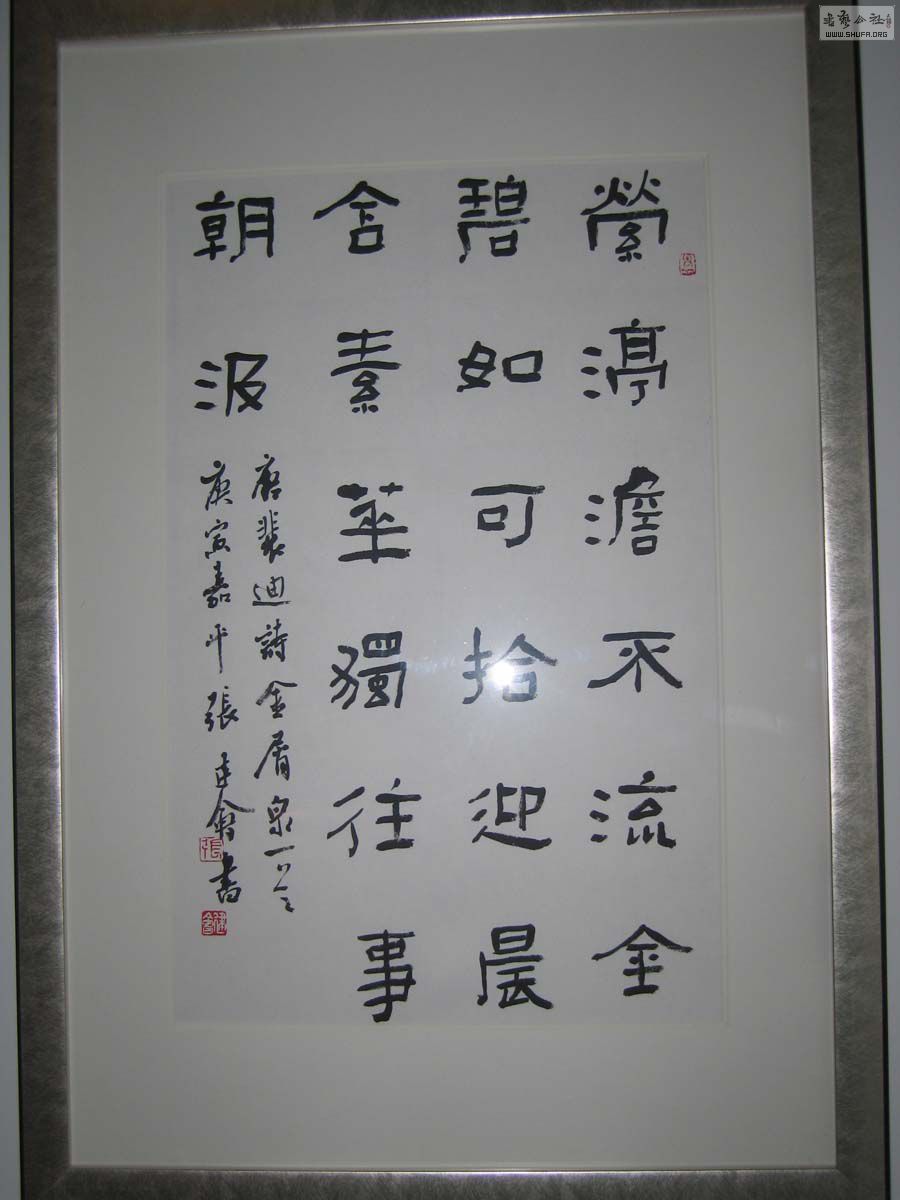 縈渟澹不流金
碧如可拾迎晨
含素華獨往事
朝汲
唐裴迪詩金屑泉一首
庚寅嘉平張建會書
張
建會
WWW.SHUFA.ORG